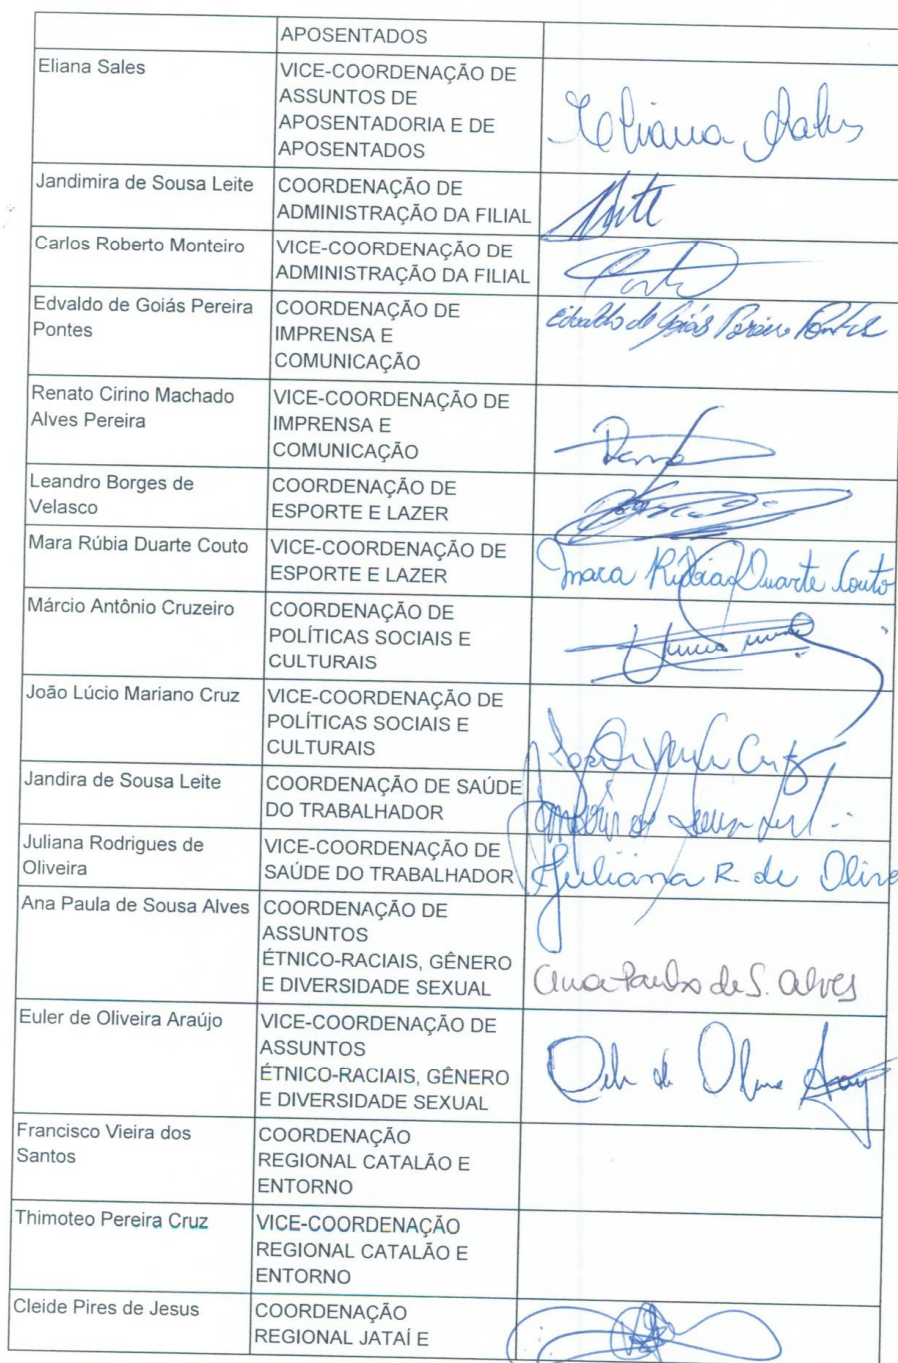 APOSENTADOS
Eliana Sales
VICE-COORDENAÇÃO DE
ASSUNTOS DE
APOSENTADORIA E DE
APOSENTADOS
Eliana Sales
Jandimira de Sousa Leite
COORDENAÇÃO DE
ADMINISTRAÇÃO DA FILIAL
Carlos Roberto Monteiro
VICE-COORDENAÇÃO DE
ADMINISTRAÇÃO DA FILIAL
Edvaldo de Goiás Pereira
Pontes
COORDENAÇÃO DE
IMPRENSA E
COMUNICAÇÃO
Edvaldo de Goiás Pereira Pontes
Renato Cirino Machado
Alves Pereira
VICE-COORDENAÇÃO DE
IMPRENSA E
COMUNICAÇÃO
Leandro Borges de
Velasco
COORDENAÇÃO DE
ESPORTE E LAZER
Mara Rúbia Duarte Couto
VICE-COORDENAÇÃO DE
ESPORTE E LAZER
Mara Rúbia Duarte Couto
Márcio Antônio Cruzeiro
COORDENAÇÃO DE
POLÍTICAS SOCIAIS E
CULTURAIS
João Lúcio Mariano Cruz
VICE-COORDENAÇÃO DE
POLÍTICAS SOCIAIS E
CULTURAIS
Jandira de Sousa Leite
COORDENAÇÃO DE SAÚDE
DO TRABALHADOR
Juliana Rodrigues de
Oliveira
VICE-COORDENAÇÃO DE
SAÚDE DO TRABALHADOR
Juliana R. de Olive
Ana Paula de Sousa Alves
COORDENAÇÃO DE
ASSUNTOS
ÉTNICO-RACIAIS, GÊNERO
E DIVERSIDADE SEXUAL
Ana Paula de S. Alves
Euler de Oliveira Araújo
VICE-COORDENAÇÃO DE
ASSUNTOS
ÉTNICO-RACIAIS, GÊNERO
E DIVERSIDADE SEXUAL
Francisco Vieira dos
Santos
COORDENAÇÃO
REGIONAL CATALÃO E
ENTORNO
Thimoteo Pereira Cruz
VICE-COORDENAÇÃO
REGIONAL CATALÃO E
ENTORNO
Cleide Pires de Jesus
COORDENAÇÃO
REGIONAL JATAÍ E